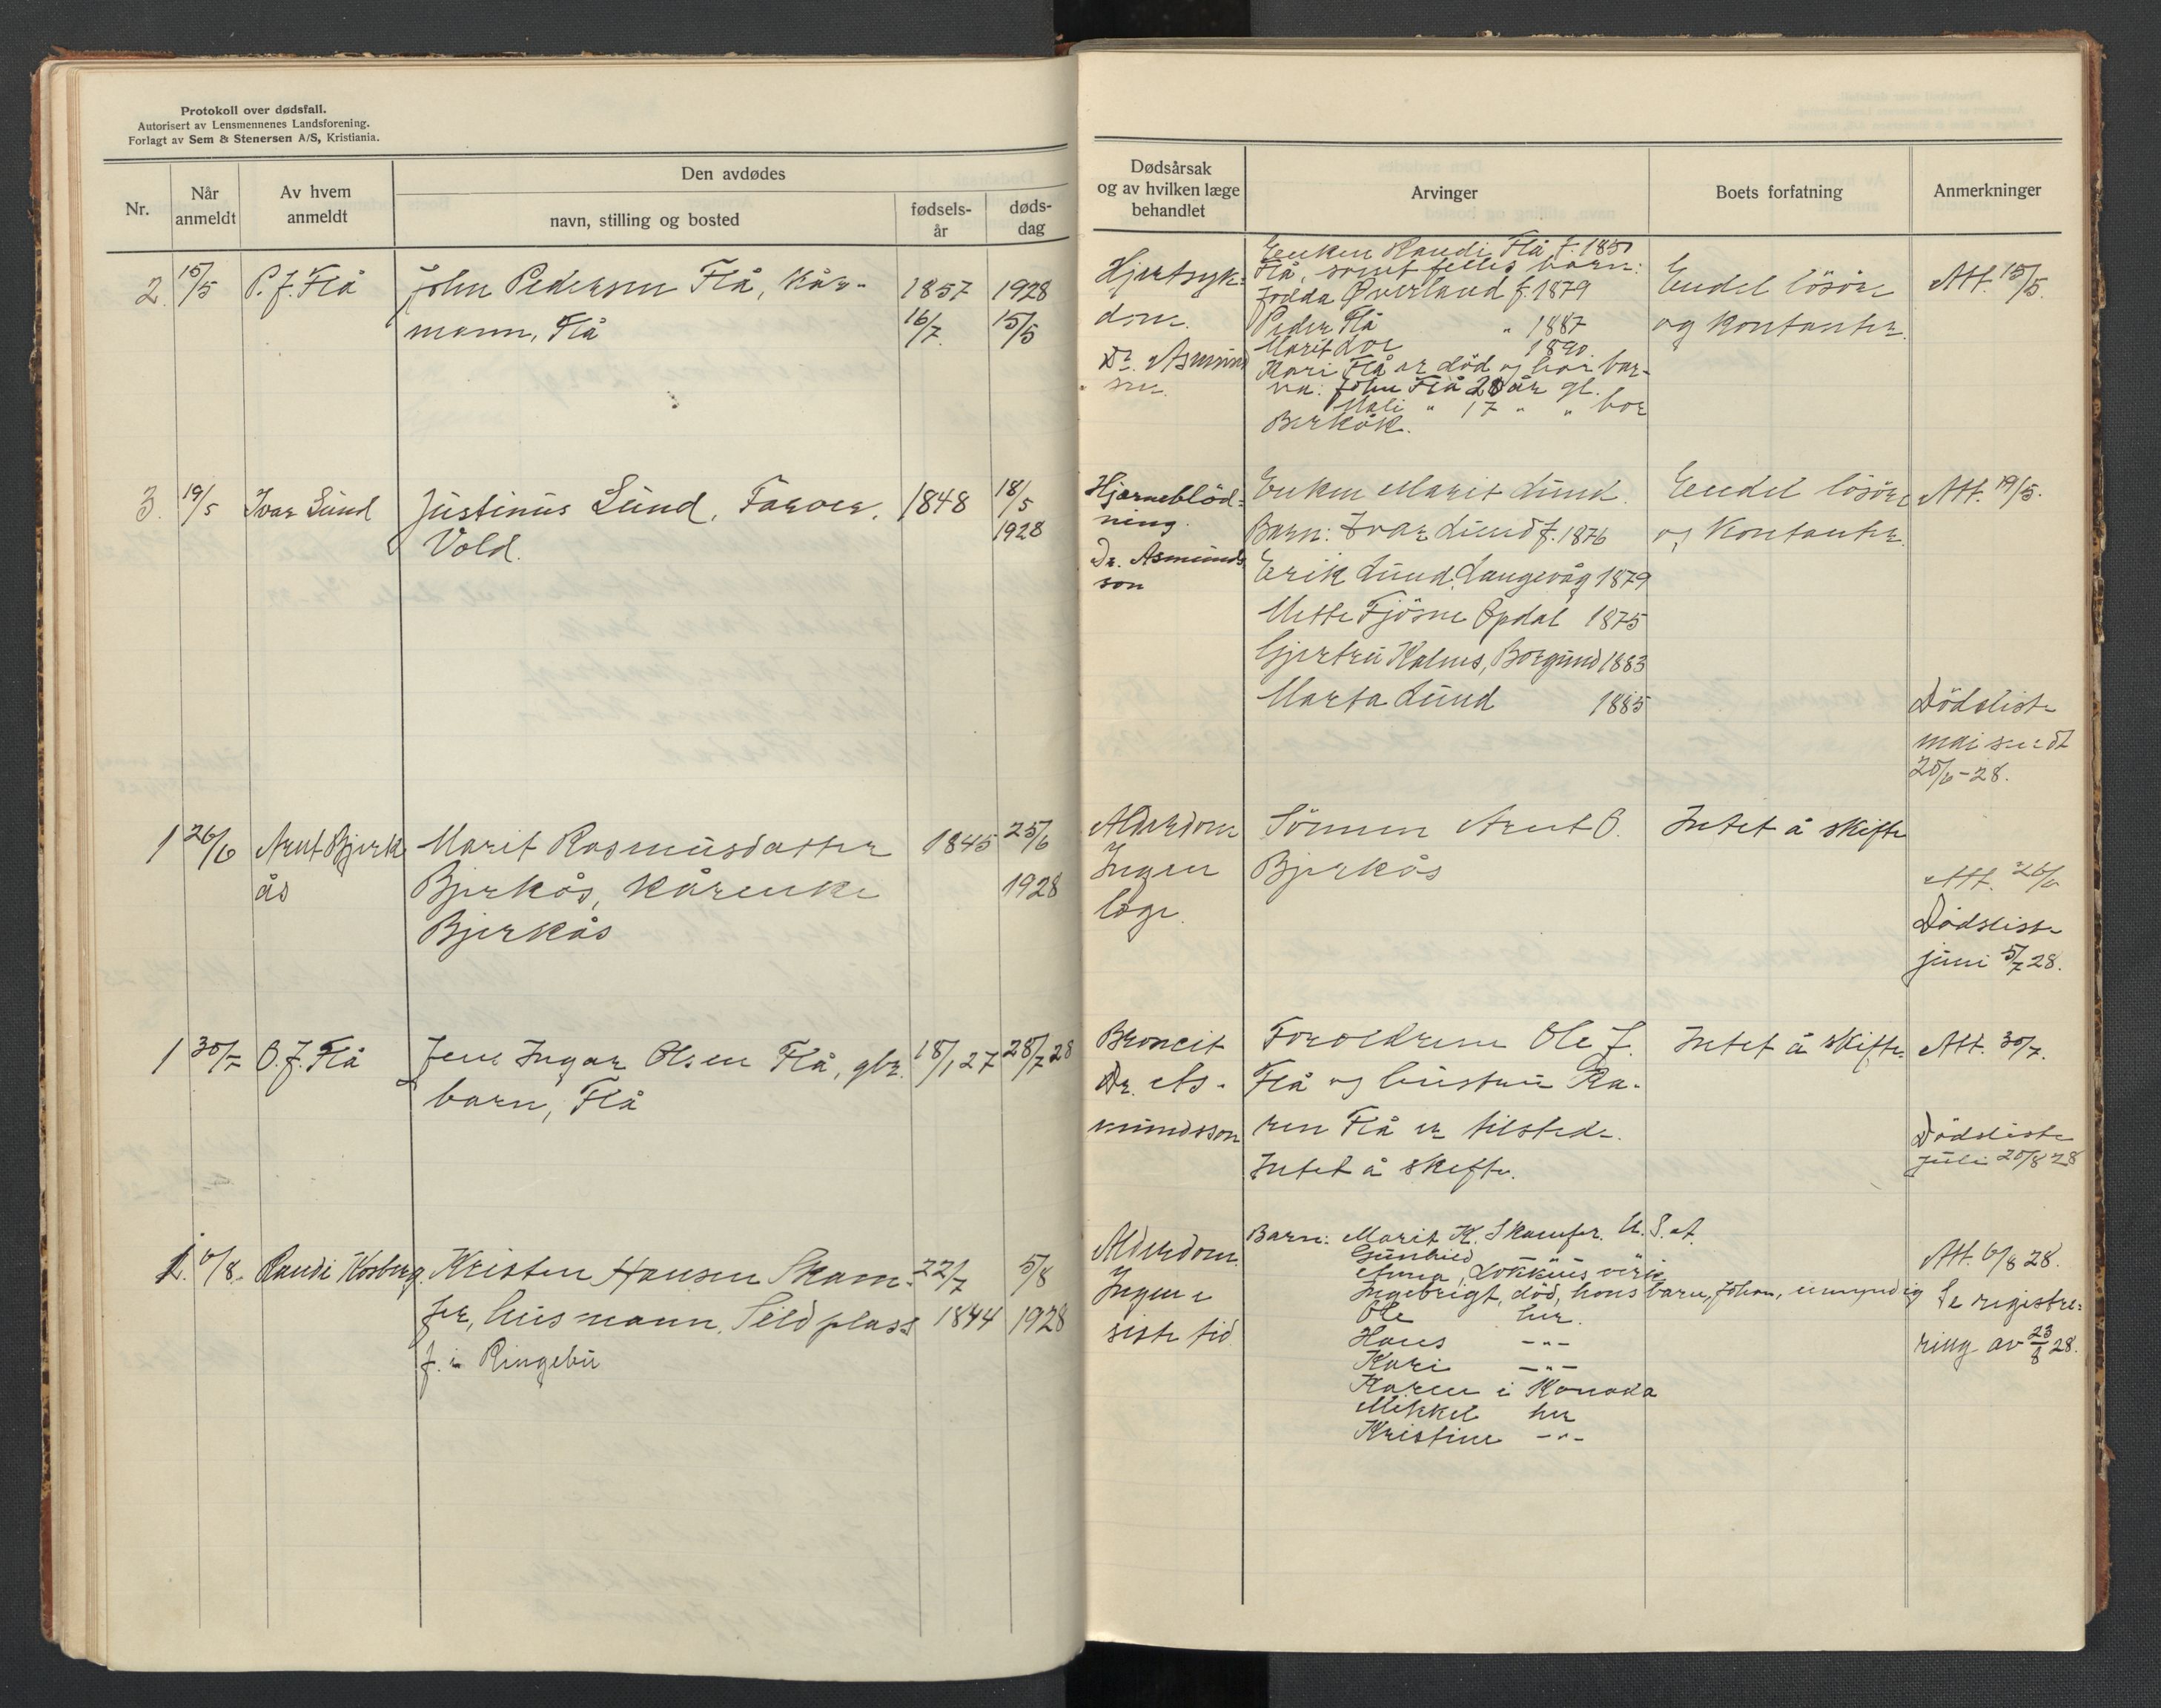 Protokoll over dødsfall.
Autorisert av Lensmennenes Landsforening.
Forlagt av Sem & Stenersen A/S, Kristiania.
Nr.
Når anmeldt
Av hvem anmeldt
Den avdødes
navn, stilling og bosted
fødsels-år
døds-dag
Dødsårsak og av hvilken læge behandlet
Arvinger
Boets forfatning
Anmerkninger
2. 15/5 P. J. Flå John Pedersen Flå, kår- 1857 1928
mann, Flå 16/7. 15/5
Hjertsyk-
dom.
Dr. Asmund
sen.
Enken Randi Flå f. 1851
Flå, samt felles barn:
Jødda Øverland f. 1879
Peder Flå " 1887
Marit Loe 1890.
Kari Flå er död og har bar-
na: John Flå 20 år gl.
Mali " 17 " " bor
Berkåk.
Endel lösöre
og kontanter.
Att. 15/5.
3. 19/5 Ivar Lund Justinus Lund, Farver, 1848 18/5
Vold. 1928
Hjerneblöd-
ning.
Dr. Asmunds
son
Enken Marit Lund.
Barn: Ivar Lund f. 1876
Erik Lund, Langevåg 1879
Mette Fjösne Opdal 1875
Gjertru Kalnes, Borgund 1883
Marta Lund 1885
Endel lösöre
og kontanter.
Att. 19/5.
Dödsliste
mai sendt
20/6-28.
1 26/6 Arnt Bjerk Marit Rasmusdatter 1845 25/6
ås Bjerkås, kårenke 1928
Bjerkås
Alderdom
Ingen
læge.
Sönnen Arnt O.
Bjerkås
Intet å skifte
Att. 26/6
Dödsliste
juni 5/7 28.
1 30/7 O. J. Flå Jens Ingar Olsen Flå, gbr. 18/1 27 28/7 28
barn, Flå
Broncit
Dr. As-
mundsson
Foreldrene Ole J.
Flå og hustru Ka-
ren Flå er tilstede.
Intet å skifte.
Intet å skifte.
Att. 30/7.
Dödsliste
Juli 20/8 28
1. 6/8. Randi Kosberg. Kristen Hansen Skam- 22/7 5/8
fer, husmann, Sildplass 1844 1928
f. i Ringebu
Alderdom.
Ingen i
siste tid
Barn: Marit K. Skamfer. U. S. A.
Gunhild -"- "
Anna, Løkkens verk
Ingebrigt, död, hans barn, Johan, umyndig
Ole her.
Hans -"-
Kari -"-
Karen i Kanada
Mikkel her
Kristine -"-
Att. 6/8 28.
Se registre-
ring av 23/8 28.